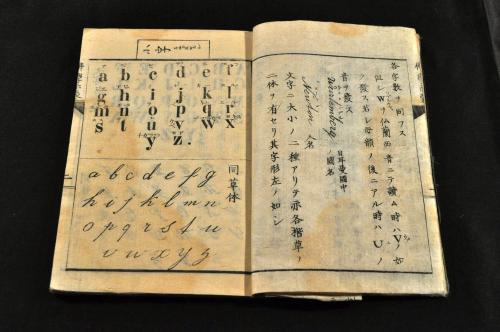 各字数ヲ同フス
但シWヲ仏蘭西音ニテ讀ム時ハVノ如
ク發ス若シ母韻ノ後ニアル時ハUノ
音ヲ發ス
Wurtemberg 日耳曼國中 國名
Newton 人名
文字ニ大小ノ二種アリテ亦各楷草ノ
二休ヲ有セリ其字形左ノ如シ
小字
a b c d e f
g h i j k l
m n o p q r
s t u v w x
y z.
同草体
a b c d e f g
h i j k l m n
o p q r s t u
v w x y z